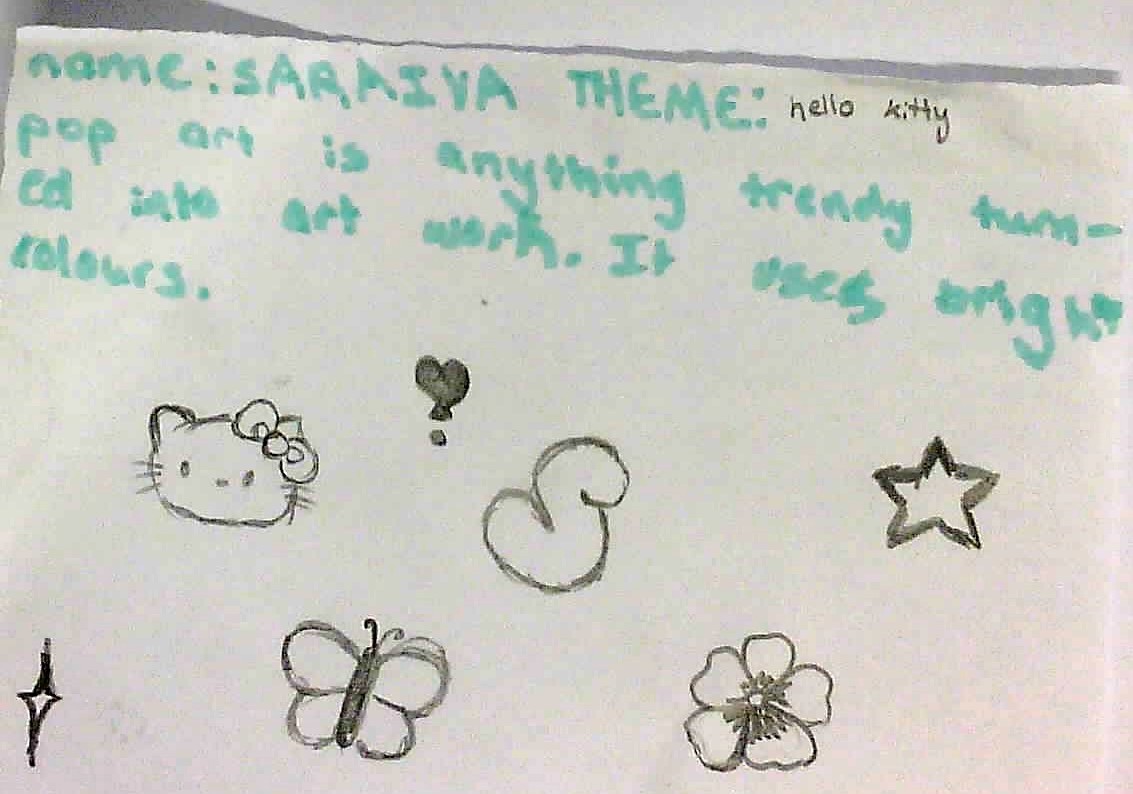 name: SARAIVA THEME: hello kitty
pop art is anything trendy turn-
ed into art work. It uses bright
colours.